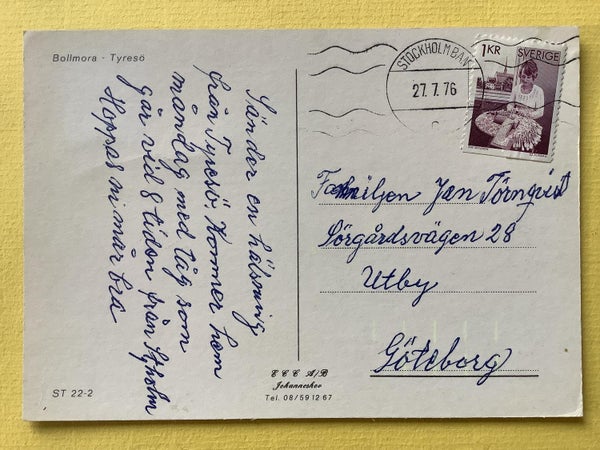 Bollmora - Tyresö
Sänder en hälsning
från Tyresö. Kommer hem
måndag med tåg som
går vid 8 tiden från Stholm
Hoppas ni mår bra
ST 22-2
ECC A/B
Johanneshov
Tel. 08/59 12 67
STOCKHOLM BAN
27.7.76
1 KR SVERIGE
Familjen Jan Törnqvist
Sörgårdsvägen 28
Utby
Göteborg